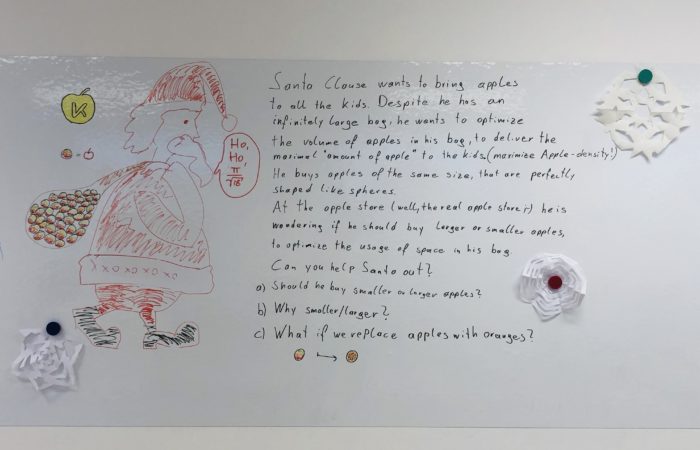 Ho,
Ho,
π
√18
Santa Clause wants to bring apples
to all the kids. Despite he has an
infinitely large bag, he wants to optimize
the volume of apples in his bag, to deliver the
maximal "amount of apple" to the kids. (maximize Apple-density!)
He buys apples of the same size, that are perfectly
shaped like spheres.
At the apple store (well, the real apple store ;) he is
wondering if he should buy larger or smaller apples,
to optimize the usage of space in his bag
Can you help Santa out?
a) Should he buy smaller or larger apples?
b) Why smaller/larger?
c) What if we replace apples with oranges?